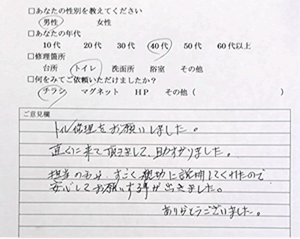 □あなたの性別を教えてください
男性 女性
□あなたの年代
10代 20代 30代 40代 50代 60代以上
□修理箇所
台所 トイレ 洗面所 浴室 その他
□何をみてご依頼いただけましたか?
チラシ マグネット HP その他( )
ご意見欄
トイレ修理をお願いしました。
直ぐに来て頂きまして、助かりました。
担当の方は、すごく親切に説明してくれたので
安心してお願いする事が出来ました。
ありがとうございました。